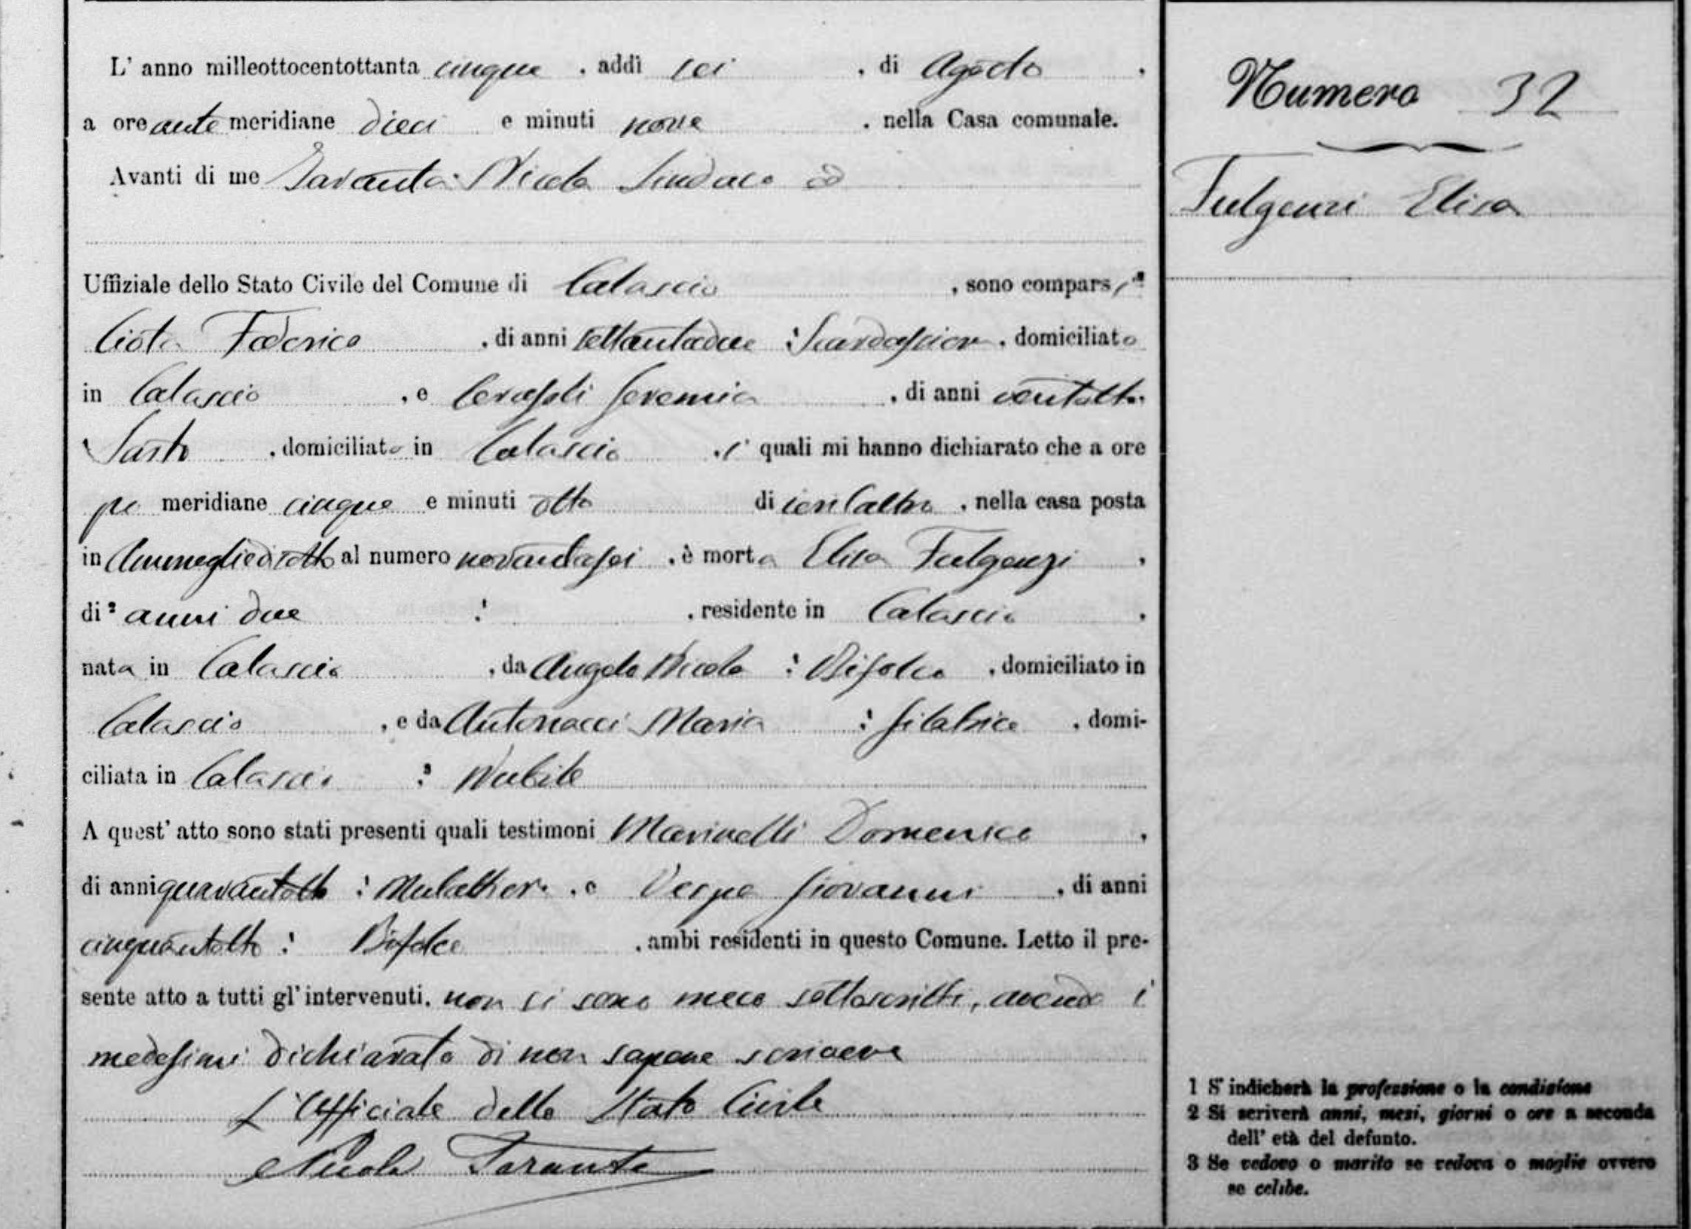 L' anno milleottocentottanta cinque, addì sei, di Agosto,
a ore ante meridiane dieci e minuti nove, nella Casa comunale.
Avanti di me Taranta Nicola Sindaco ed
Uffiziale dello Stato Civile del Comune di Calascio, sono comparsi
Ciota Federico, di anni settantadue, domiciliato
in Calascio, e Cerasoli Geremia, di anni ventotto
Sarto, domiciliato in Calascio, i quali mi hanno dichiarato che a ore
po meridiane cinque e minuti otto di ieri l'altro, nella casa posta
in al numero novantasei, è morta Elisa Fulgenzi,
di ² anni due, residente in Calascio,
nata in Calascio, da Angelo Nicola Bifolco, domiciliato in
Calascio, e da Antonacci Maria filatrice, domi-
ciliata in Calascio ³ Nubile
A quest' atto sono stati presenti quali testimoni Marinelli Domenico,
di anni quarantotto Mulattiere, e Verpa Giovanni, di anni
cinquantotto Bifolco, ambi residenti in questo Comune. Letto il pre-
sente atto a tutti gl' intervenuti, non si sono meco sottoscritti, avendo i
medesimi dichiarato di non sapere scrivere
L'Ufficiale dello Stato Civile
Nicola Taranta
Numero 32
Fulgenzi Elisa
1 S' indicherà la professione o la condizione
2 Si scriverà anni, mesi, giorni o ore a seconda
dell' età del defunto.
3 Se vedovo o marito se vedova o moglie ovvero
se celibe.